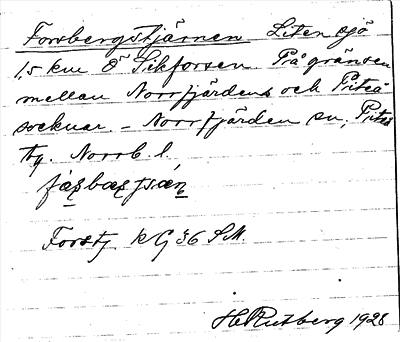 Forsbergstjärnen Liten sjö
1,5 km Ö Sikforsen. På gränsen
mellan Norrfjärdens och Piteå
socknar. – Norrfjärden sn, Piteå
tg. Norrb. l.
Forstj. kG 36 SM.
H Rutberg 1928